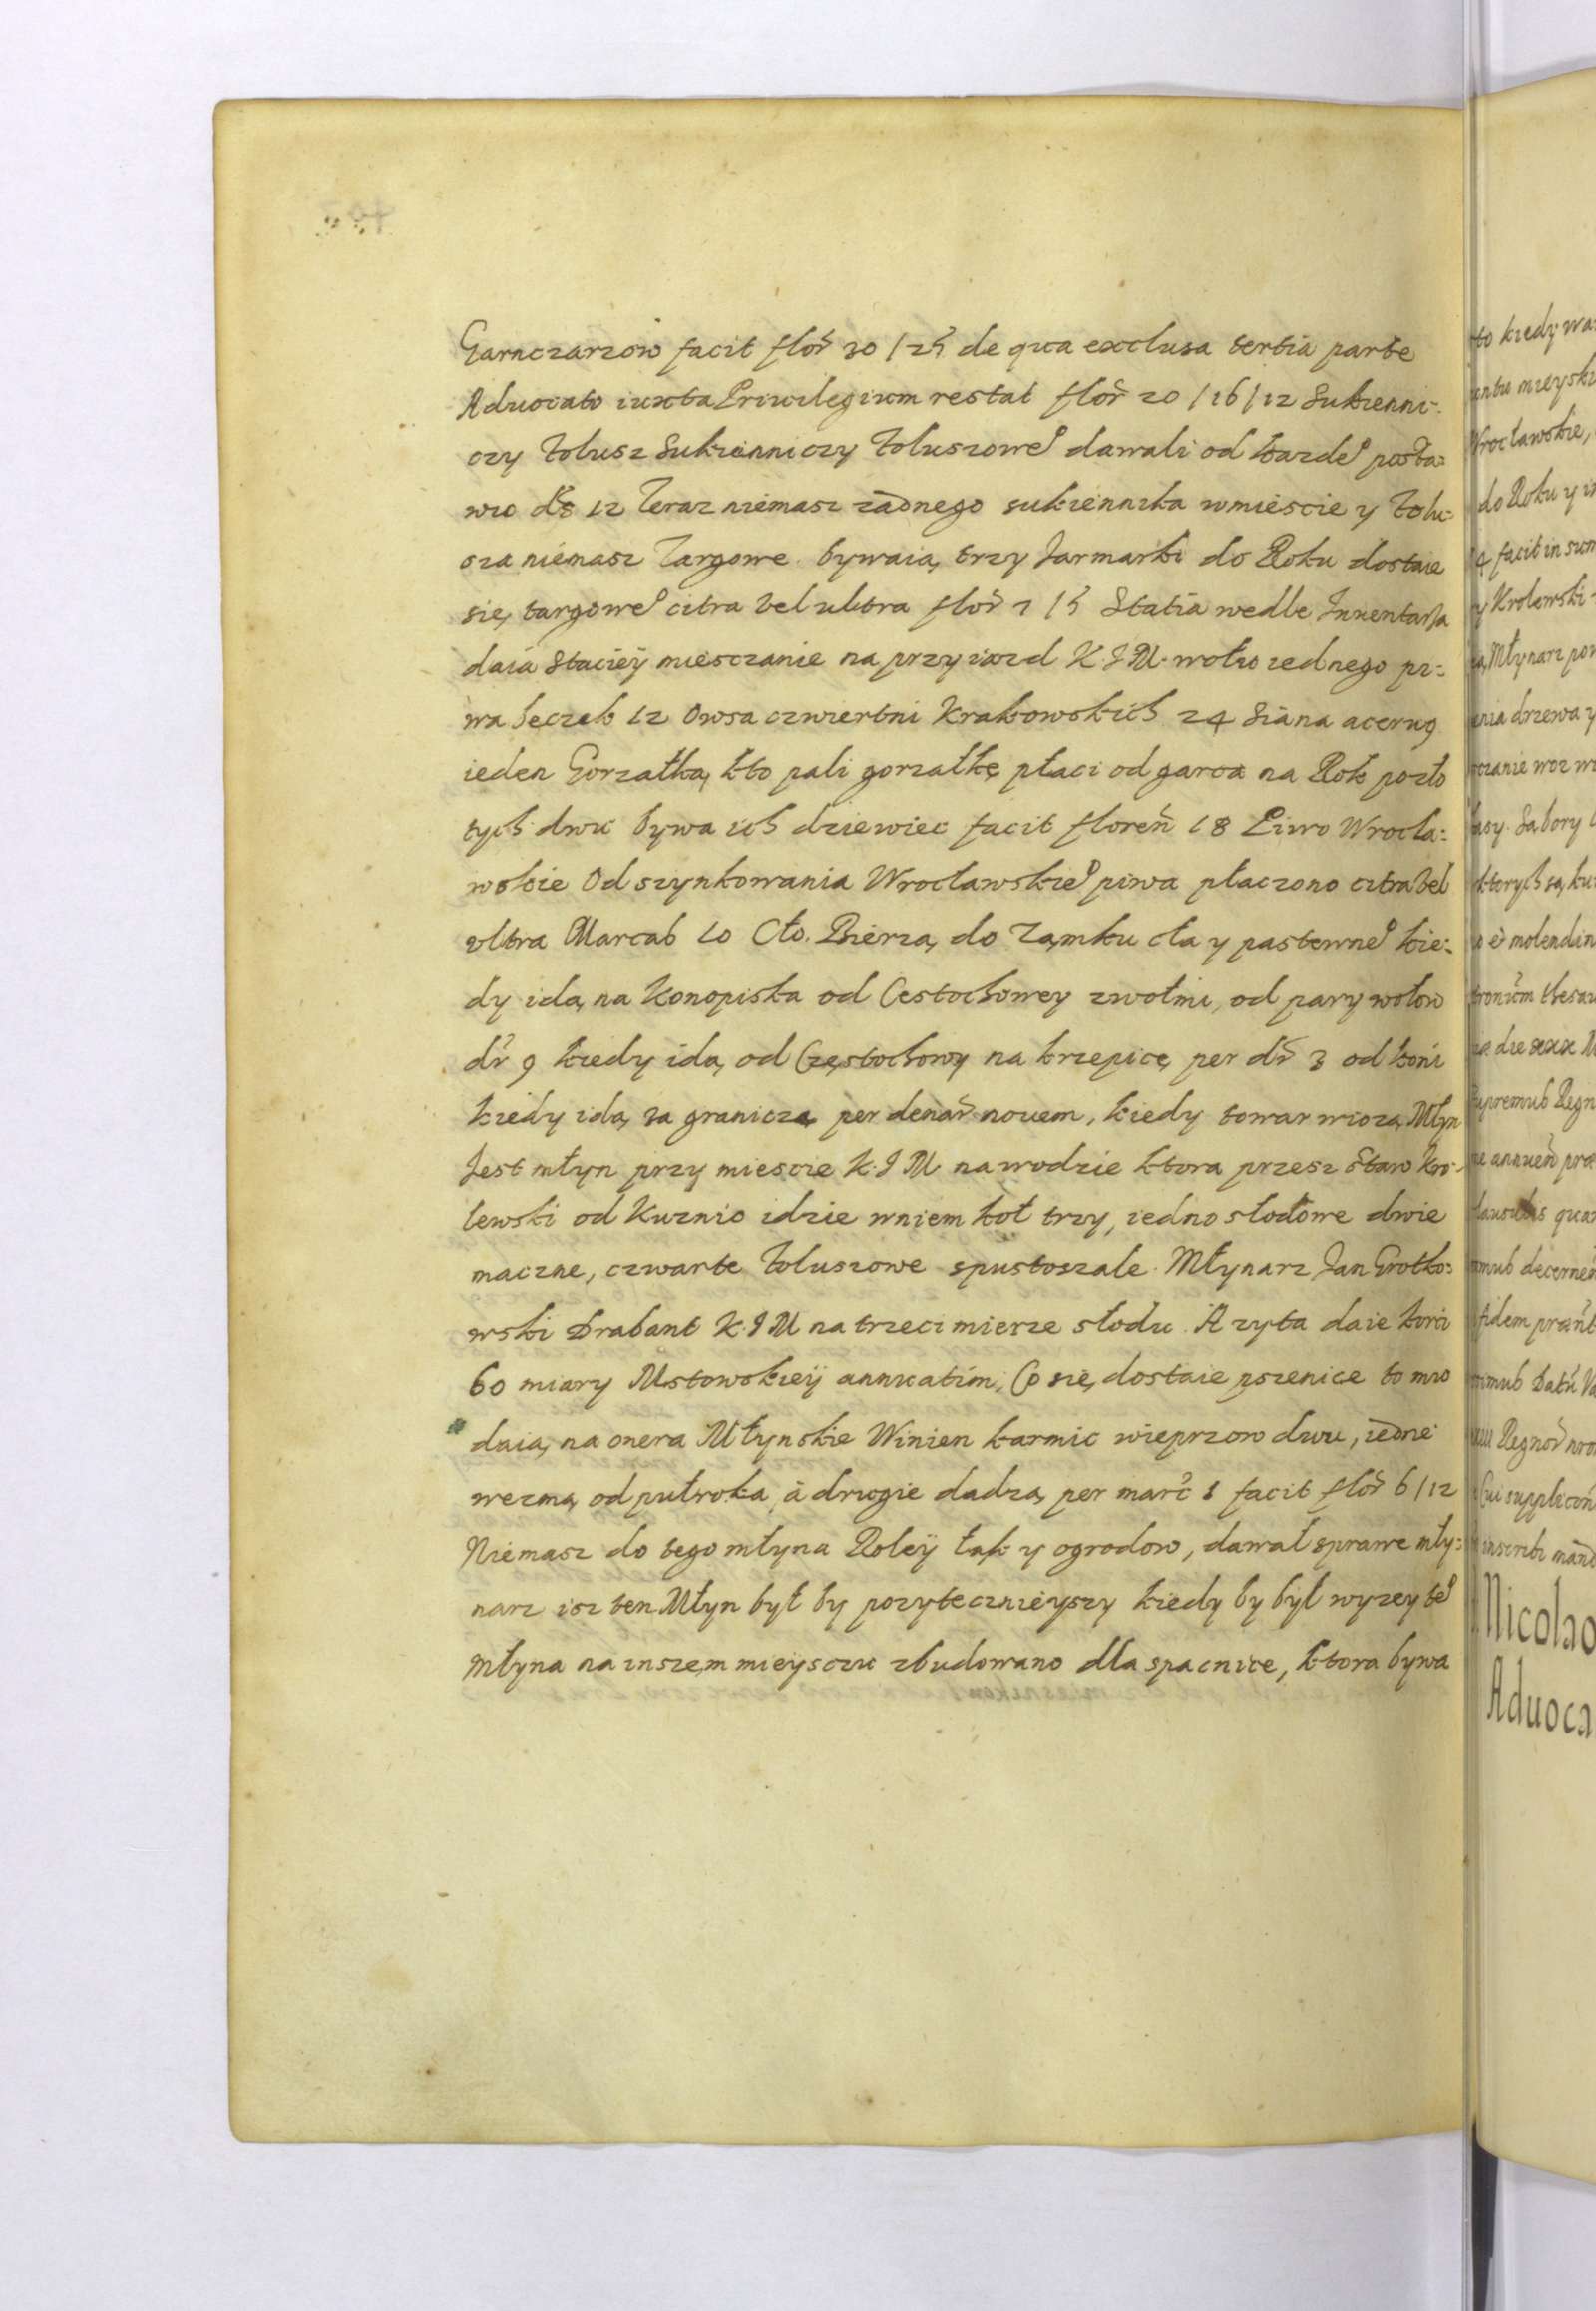 Garnczarzow facit flor 30 / 25 de qua exclusa tertia parte
Aduocato iuxta Priuilegium restat flor 20 / 16 / 12 Sukienni-
czy Foluszˀ Sukienniczy foluszoweº dawali od kazdeº posta=
wu dr 12 Teraz niemasz zadnego sukiennika wmiescie y folu=
sza niemasz Targowe bywaią trzy Jarmarki do Roku dostaie
się targoweº citra vel ultra flor 1 / 5 Statia wedle Inuentarza
daia Staciey miesczanie na przyiazd K.J.M. wołu iednego pi=
wa beczek 12 Owsa czwiertni Krakowskich 24 Siana aceruꝯ
ieden Gorzałka, kto pali gorzałkę płaci od garca na Rok pozło
tych dwu bywa ich dziewiec facit floren 18 Piwo Wrocła=
wskie Od szynkowania Wrocławskieº piwa płaczono citra vel
vltra Marcas 10 Cło. Bierzą do Zamku cła y pastewneº kie=
dy idą na Konopiska od Cestochowey zwołmi, od pary wołow
dr 9 kiedy idą od Częstochowy na krzepicę per dr 3 od koni
kiedy idą za granicza per denar nouem, kiedy towar wiozą Młyn
Jest młyn przy miescie K.J M na wodzie ktora przesz Staw Kro=
lewski od Kuznic idzie wniem koł trzy, iedno słodowe dwie
maczne, czwarte foluszowe spustoszale. Młynarz Jan Grotko=
wski Drabant K.J M na trzeci mierze słodu. A zyta daie korci
60 miary Mstowskiey annuatim, Co się dostaie pszenice to mu
daią na onera Młynskie Winien karmic wieprzow dwu, iedne
wezmą od pułroka, à drugie dadzą per marc 1 facit flor 6 / 12
Niemasz do tego młyna Roley łąk y ogrodow, dawał sprawe mły=
narz isz ten Młyn był by pozytecznieyszy kiedy by był wyzey teº
Młyna na inszem mieysczu zbudowano dla spacnice, ktora bywa
to kiedy
mieyski
Wrocławskie,
do Roku y
4 facit in sum
y Krolewski
Młynarz
drzewa y
czanie woz
ktorych są
molendin
die xxx
supremus Regn
decernen
fidem
Regnor
inscribi mand
Nicolao
Aduoca